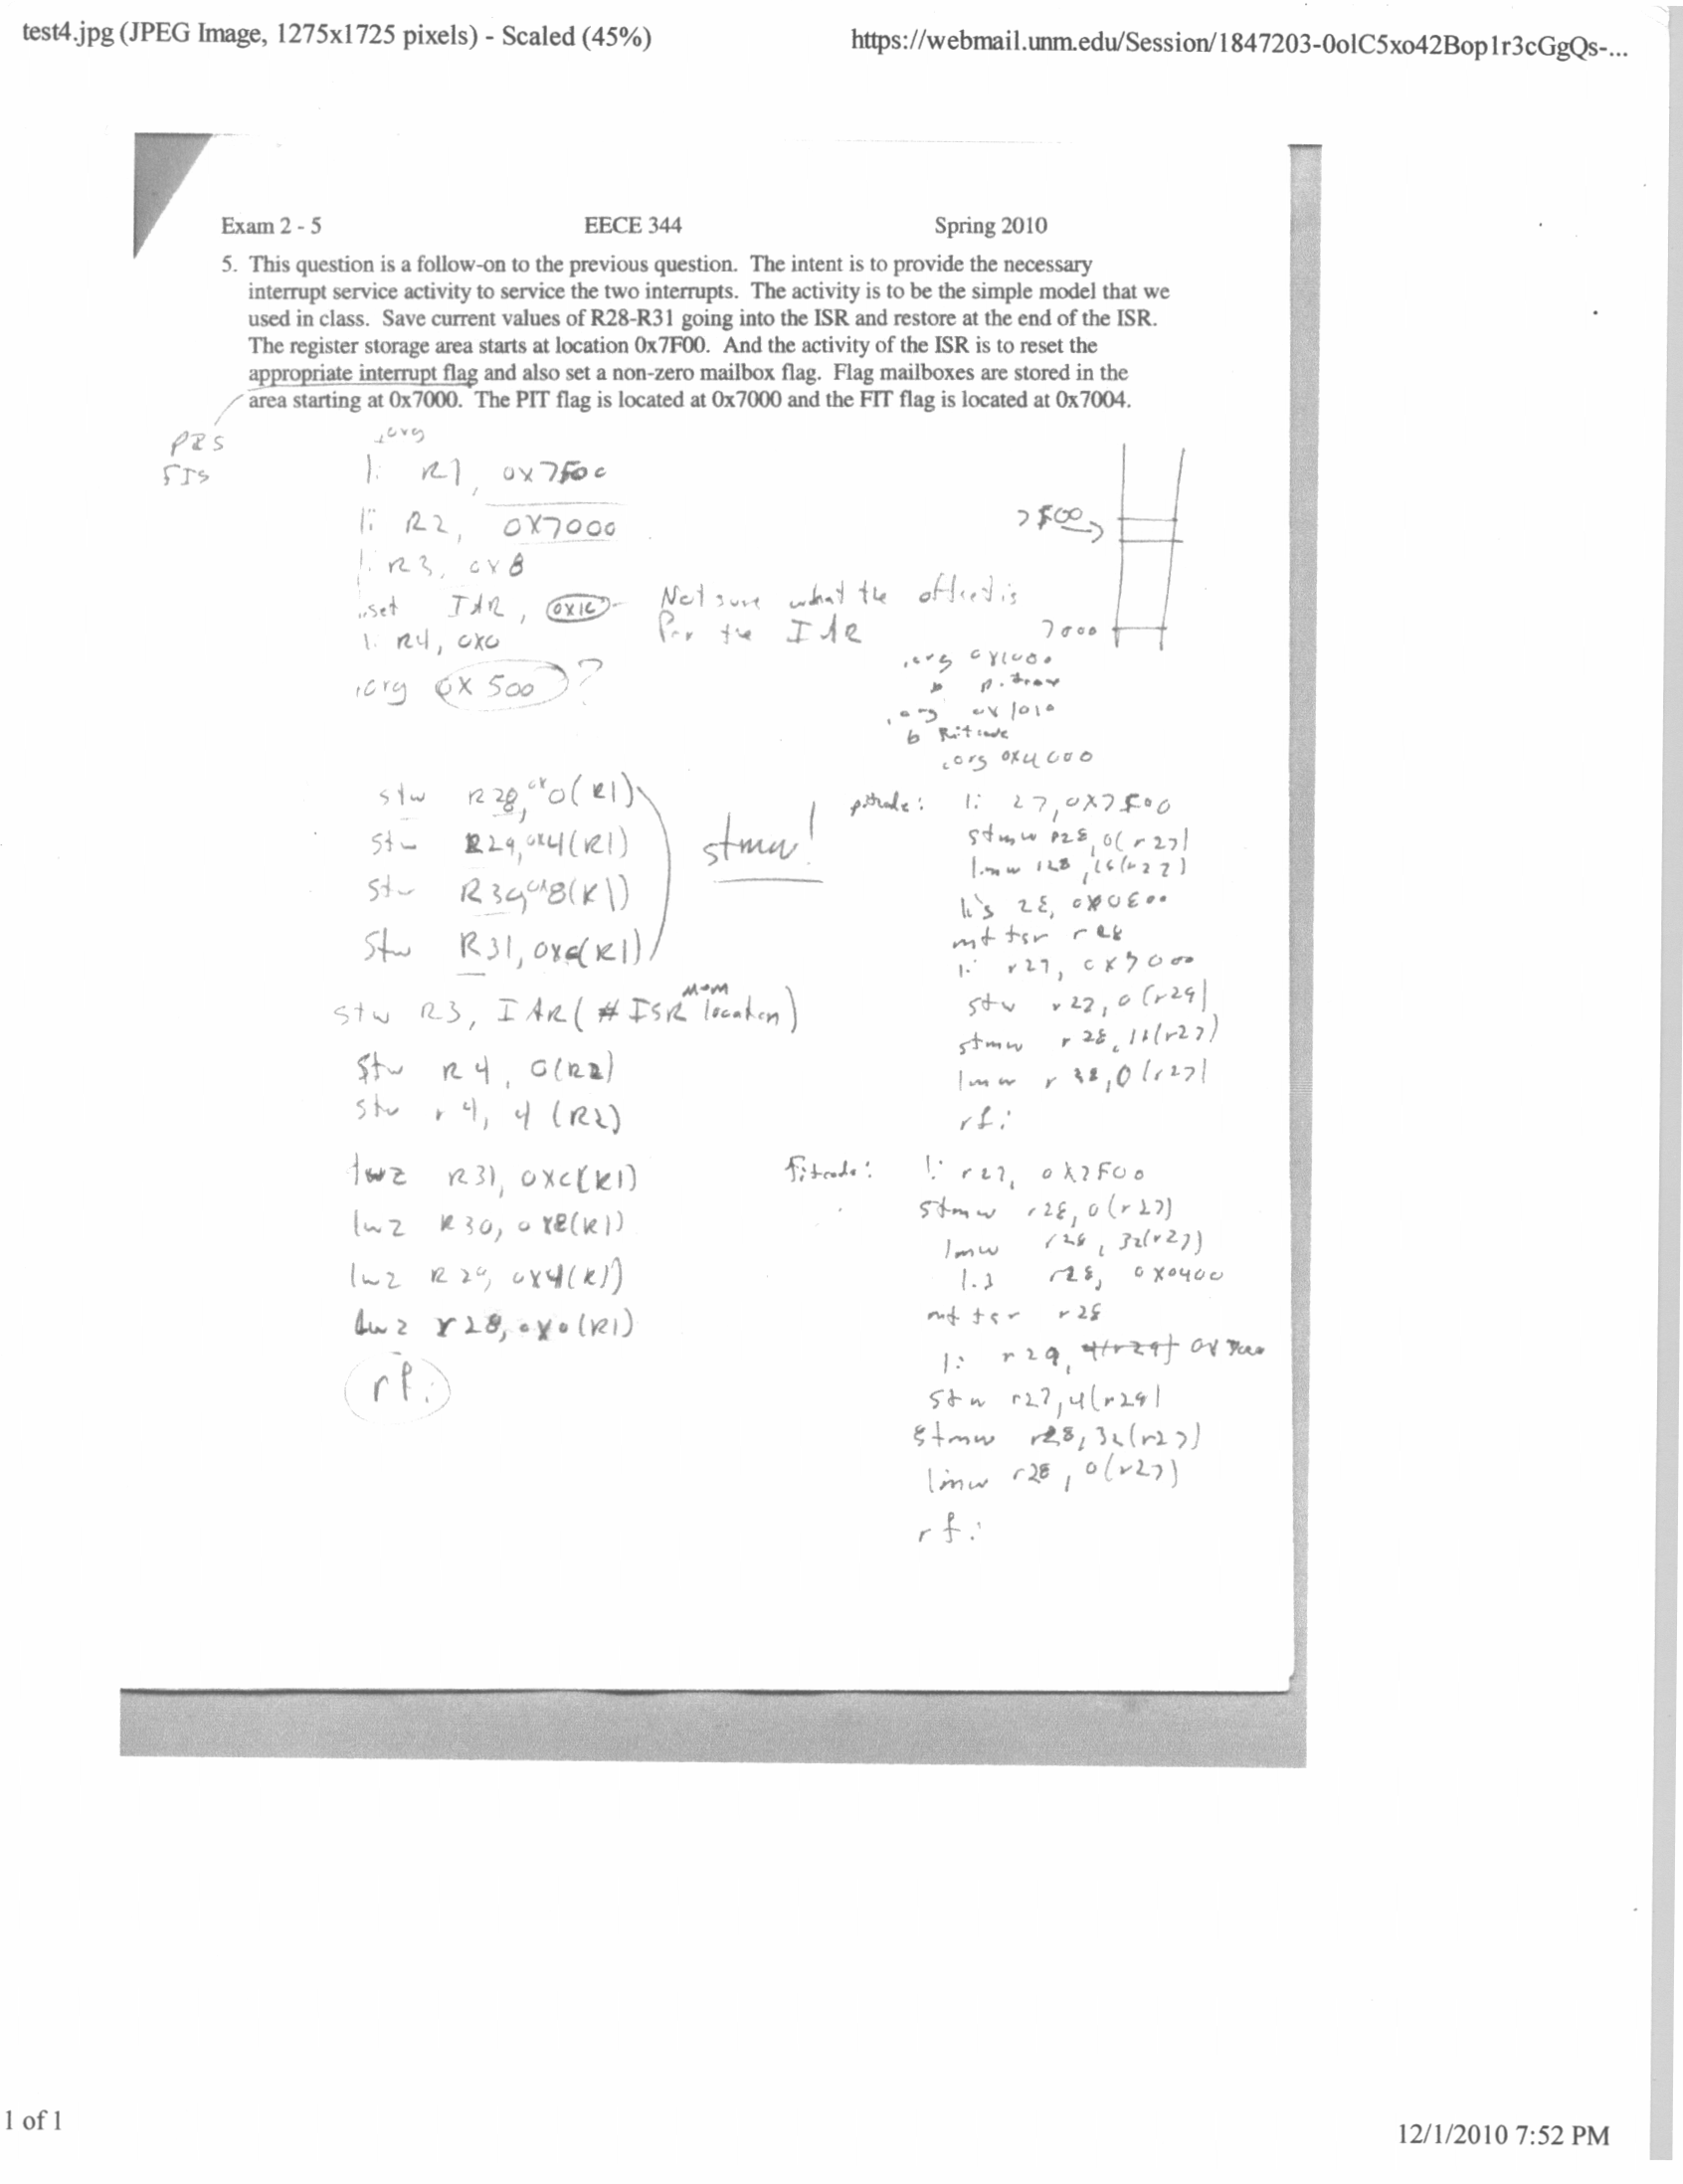 test4.jpg (JPEG Image, 1275x1725 pixels) - Scaled (45%)
https://webmail.unm.edu/Session/1847203-0olC5xo42Bop1r3cGgQs-...
Exam 2 - 5
EECE 344
Spring 2010
5. This question is a follow-on to the previous question. The intent is to provide the necessary
interrupt service activity to service the two interrupts. The activity is to be the simple model that we
used in class. Save current values of R28-R31 going into the ISR and restore at the end of the ISR.
The register storage area starts at location 0x7F00. And the activity of the ISR is to reset the
appropriate interrupt flag and also set a non-zero mailbox flag. Flag mailboxes are stored in the
area starting at 0x7000. The PIT flag is located at 0x7000 and the FIT flag is located at 0x7004.
.org
li R1, 0x7F00
li R2, 0x7000
li R3, 0x8
.set IAR,
Not sure what the offset is
For the IAR
li R4, 0x0
.org 0x500 ?
7F00
7000
.org 0x1000
b
.org 0x1010
b
.org 0x4000
stw R28, 0x0(R1)
stw R29, 0x4(R1)
stw R30, 0x8(R1)
stw R31, 0xc(R1)
stmw!
stw R3, IAR(# ISR mem location)
stw R4, 0(R2)
stw r4, 4(R2)
lwz R31, 0xC(R1)
lwz R30, 0x8(R1)
lwz R29, 0x4(R1)
lwz r28, 0x0(R1)
rfi
pitcode: li 27, 0x7F00
stmw r28, 0(r27)
lmw r28, 16(r27)
lis 28,
mttsr r28
li 0x7000
stw r27, 0(r29)
stmw r28, 16(r27)
lmw r28, 0(r27)
rfi
fitcode: li r27, 0x7F00
stmw r28, 0(r27)
lmw r28, 32(r27)
lis r28, 0x0400
mttsr r28
li r29, 0x7000
stw r27, 4(r29)
stmw r28, 32(r27)
lmw r28, 0(r27)
rfi
1 of 1
12/1/2010 7:52 PM